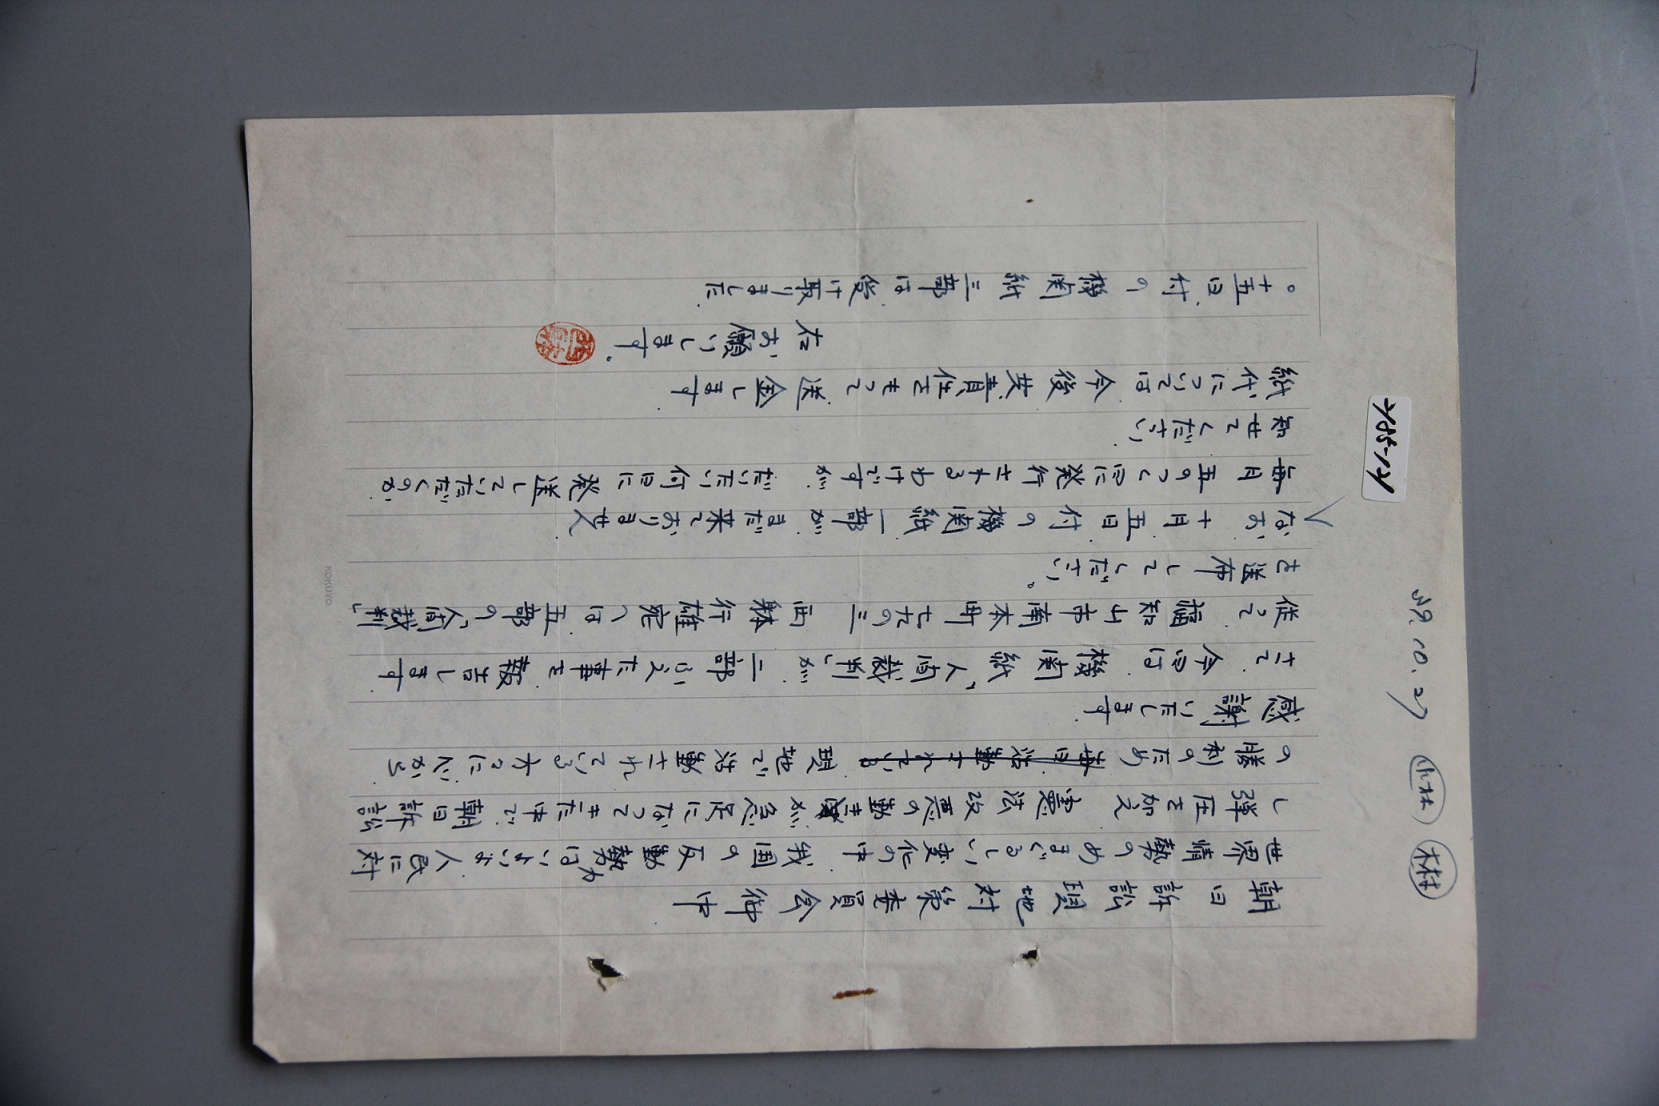 39.10.27 小林 木村
朝日訴訟現地対策委員会御中
世界情勢のめまぐるしい変化の中 我国の反動勢力はいよいよ人民に対
し弾圧を加え 憲法改悪の動きが急足になってきた中で、朝日訴訟
の勝利のため 毎日活動されている 現地で活動されている方々に心から
感謝いたします
さて、今回は、機関紙“人間裁判”が、二部ふえた事を報告します
従って 福知山市南本町七九の三 西躰行雄宛へは五部の“人間裁判”
を送布してください。
なお、十月五日付の機関紙一部がまだ来ておりません
毎月五のつく日に発行されるわけですが、だいたい何日に発送していただくのか
知せてください
紙代については今後共責任をもって送金します
右お願いします。
○十五日付の機関紙三部は受け取りました
KOKUYO